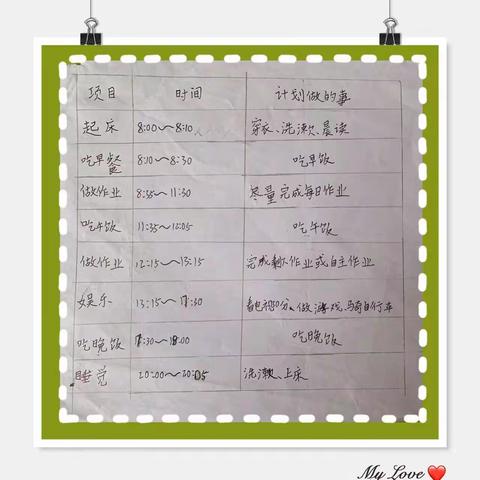 项目 时间 计划做的事
起床 8:00～8:10 穿衣、洗漱、晨读
吃早餐 8:10～8:30 吃早饭
做作业 8:35～11:30 尽量完成每日作业
吃午饭 11:35～12:05 吃午饭
做作业 12:15～13:15 完成剩下作业或自主作业
娱乐 13:15～17:30 看电视30分、做游戏、骑自行车
吃晚饭 17:30～18:00 吃晚饭
睡觉 20:00～20:05 洗漱、上床
My Love